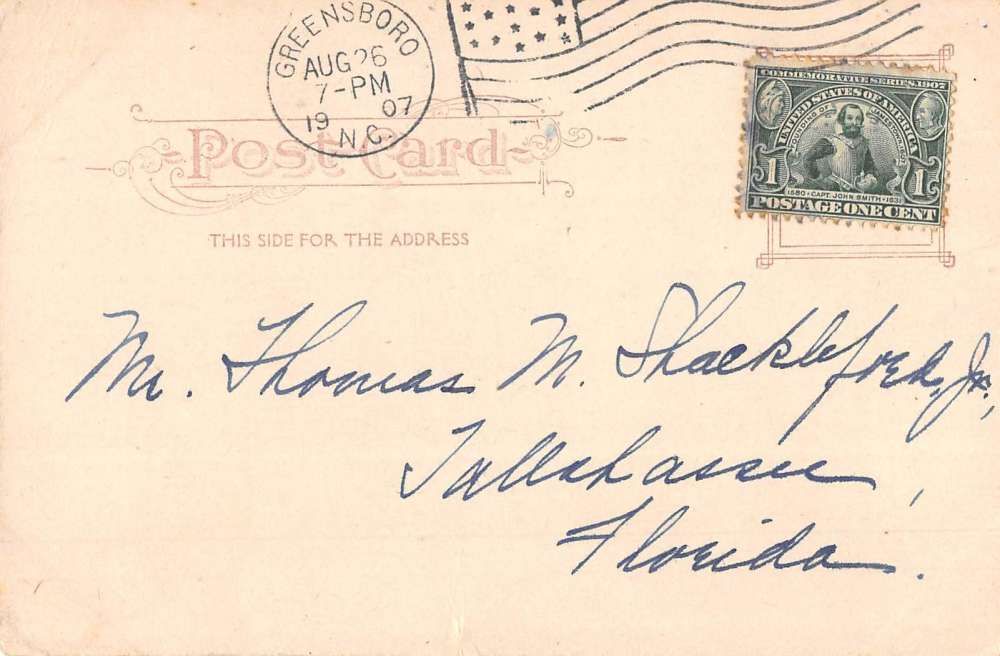 GREENSBORO
AUG 26
7-PM
19 07
N.C.
COMMEMORATIVE SERIES, 1907
UNITED STATES OF AMERICA
FOUNDING OF JAMESTOWN 1607
1 1
1580 • CAPT. JOHN SMITH • 1631
POSTAGE ONE CENT
Post Card
THIS SIDE FOR THE ADDRESS
Mr. Thomas M. Shackleford, Jr.,
Tallahassee,
Florida.